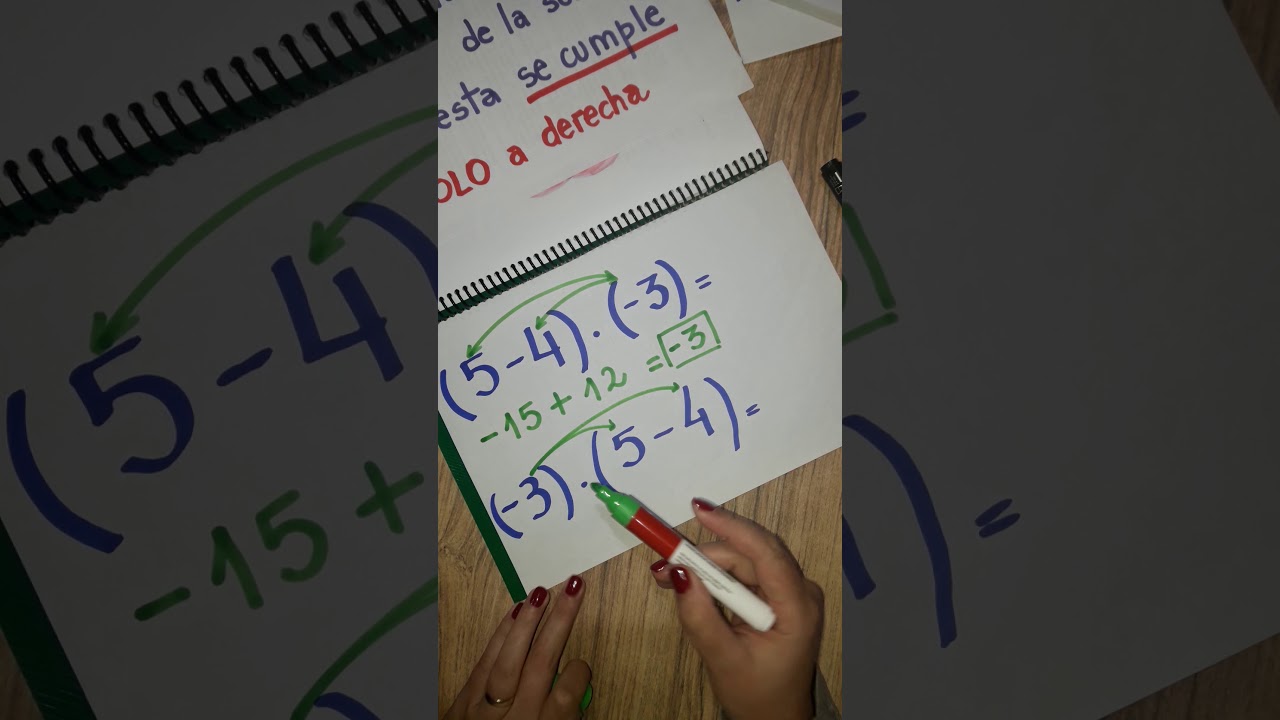 de la
esta se cumple
OLO a derecha
(5-4)·(-3)=
-15+12=-3
(-3)·(5-4)=